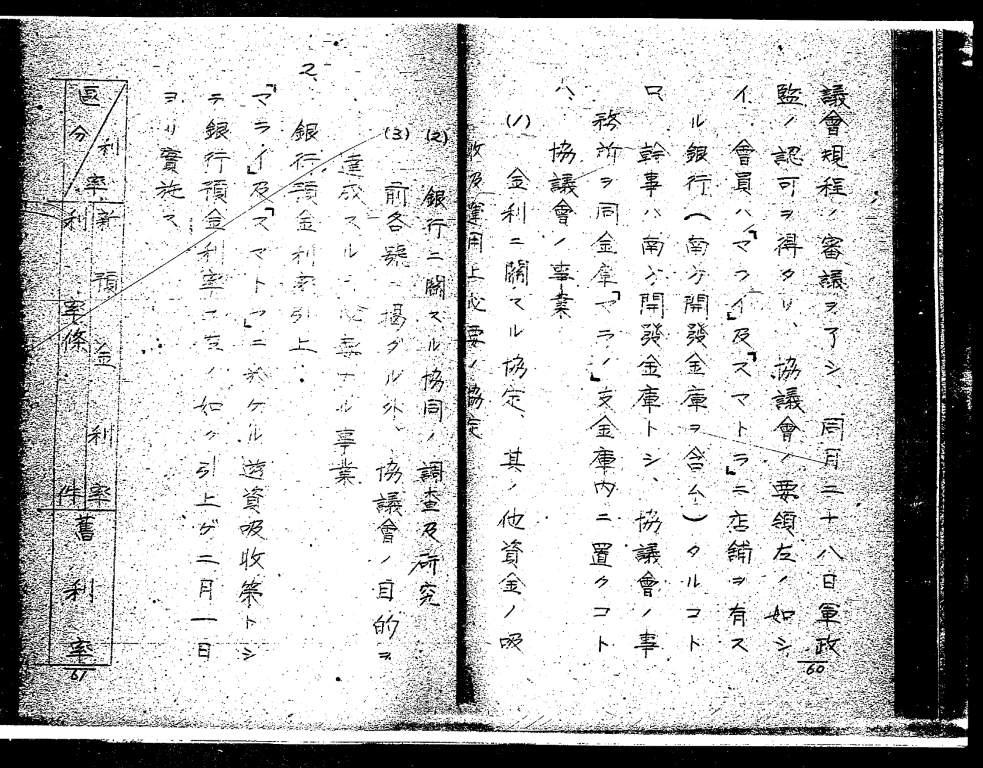 議會規程ノ審議ヲ了シ、同月二十八日軍政
監ノ認可ヲ得タリ、協議會ノ要領左ノ如シ
イ、會員ハ「マライ」及「スマトラ」ニ店舖ヲ有ス
ル銀行(南方開發金庫ヲ含ム)タルコト
ロ、幹事ハ南方開發金庫トシ、協議會ノ事
務所ヲ同金庫「マライ」支金庫內ニ置クコト
ハ、協議會ノ事業
(1) 金利ニ關スル協定、其ノ他資金ノ吸
收及運用上必要ノ協定
(2) 銀行ニ關スル協同ノ調査及研究
(3) 前各號ニ揭グル外、協議會ノ目的ヲ
達成スルニ必要ナル事業
2、銀行預金利率引上
「マライ」及「スマトラ」ニ於ケル遊資吸收策トシ
テ銀行預金利率ヲ左ノ如ク引上ゲ二月一日
ヨリ實施ス
區分
利率
新預金利率
舊利率
利率條件
60
61